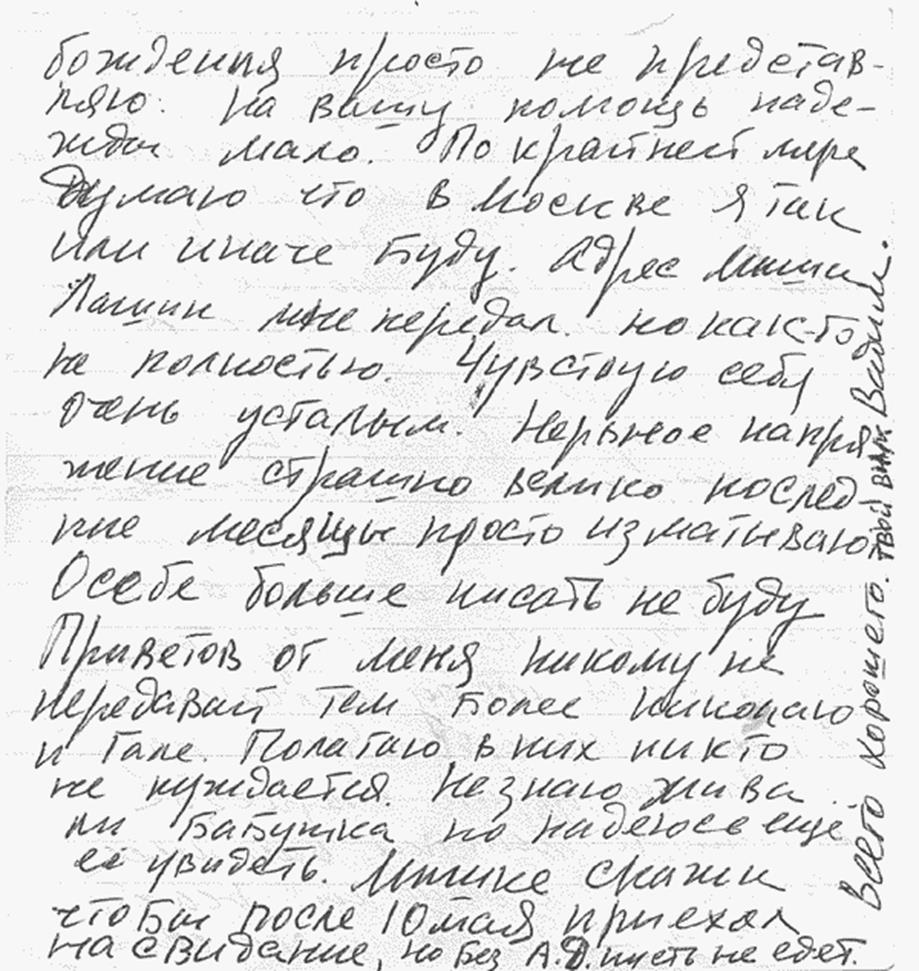 бождения просто не представ-
ляю. На вашу помощь наде-
жды мало. По крайней мере
Думаю что в Москве я так
или иначе буду. Адрес Миши
Лашин мне передал. но как-то
не полностью. Чувствую себя
очень усталым. Нервное напря
жение страшно велико послед-
ние месяцы просто изматываю
О себе больше писать не буду
Приветов от меня никому не
передавай тем более Николаю
и Гале. Полагаю в них никто
не нуждается. Не знаю жива
ли бабушка но надеюсь ещё
её увидеть. Мишке скажи
что бы после 10 мая приехал
на свидание, но без А.Д. пусть не едет.
Всего хорошего. твой внук Вадим.